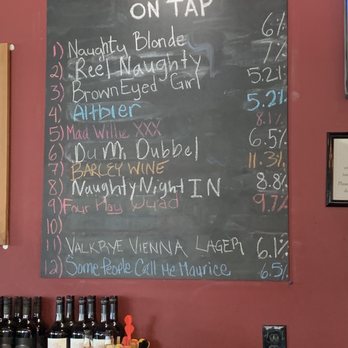 ON TAP
1) Naughty Blonde 6%
2) Reel Naughty 7%
3) Brown Eyed Girl 5.21%
4) Altbier 5.2%
5) Mad Willie XXX 8.1%
6) Du Mi Dubbel 6.5%
7) BARLEY WINE 11.3%
8) Naughty Night IN 8.8%
9) Four Hoy 9.7%
10)
11) VALKRYE VIENNA LAGER 6.1%
12) Some People Call Me Maurice 6.5%